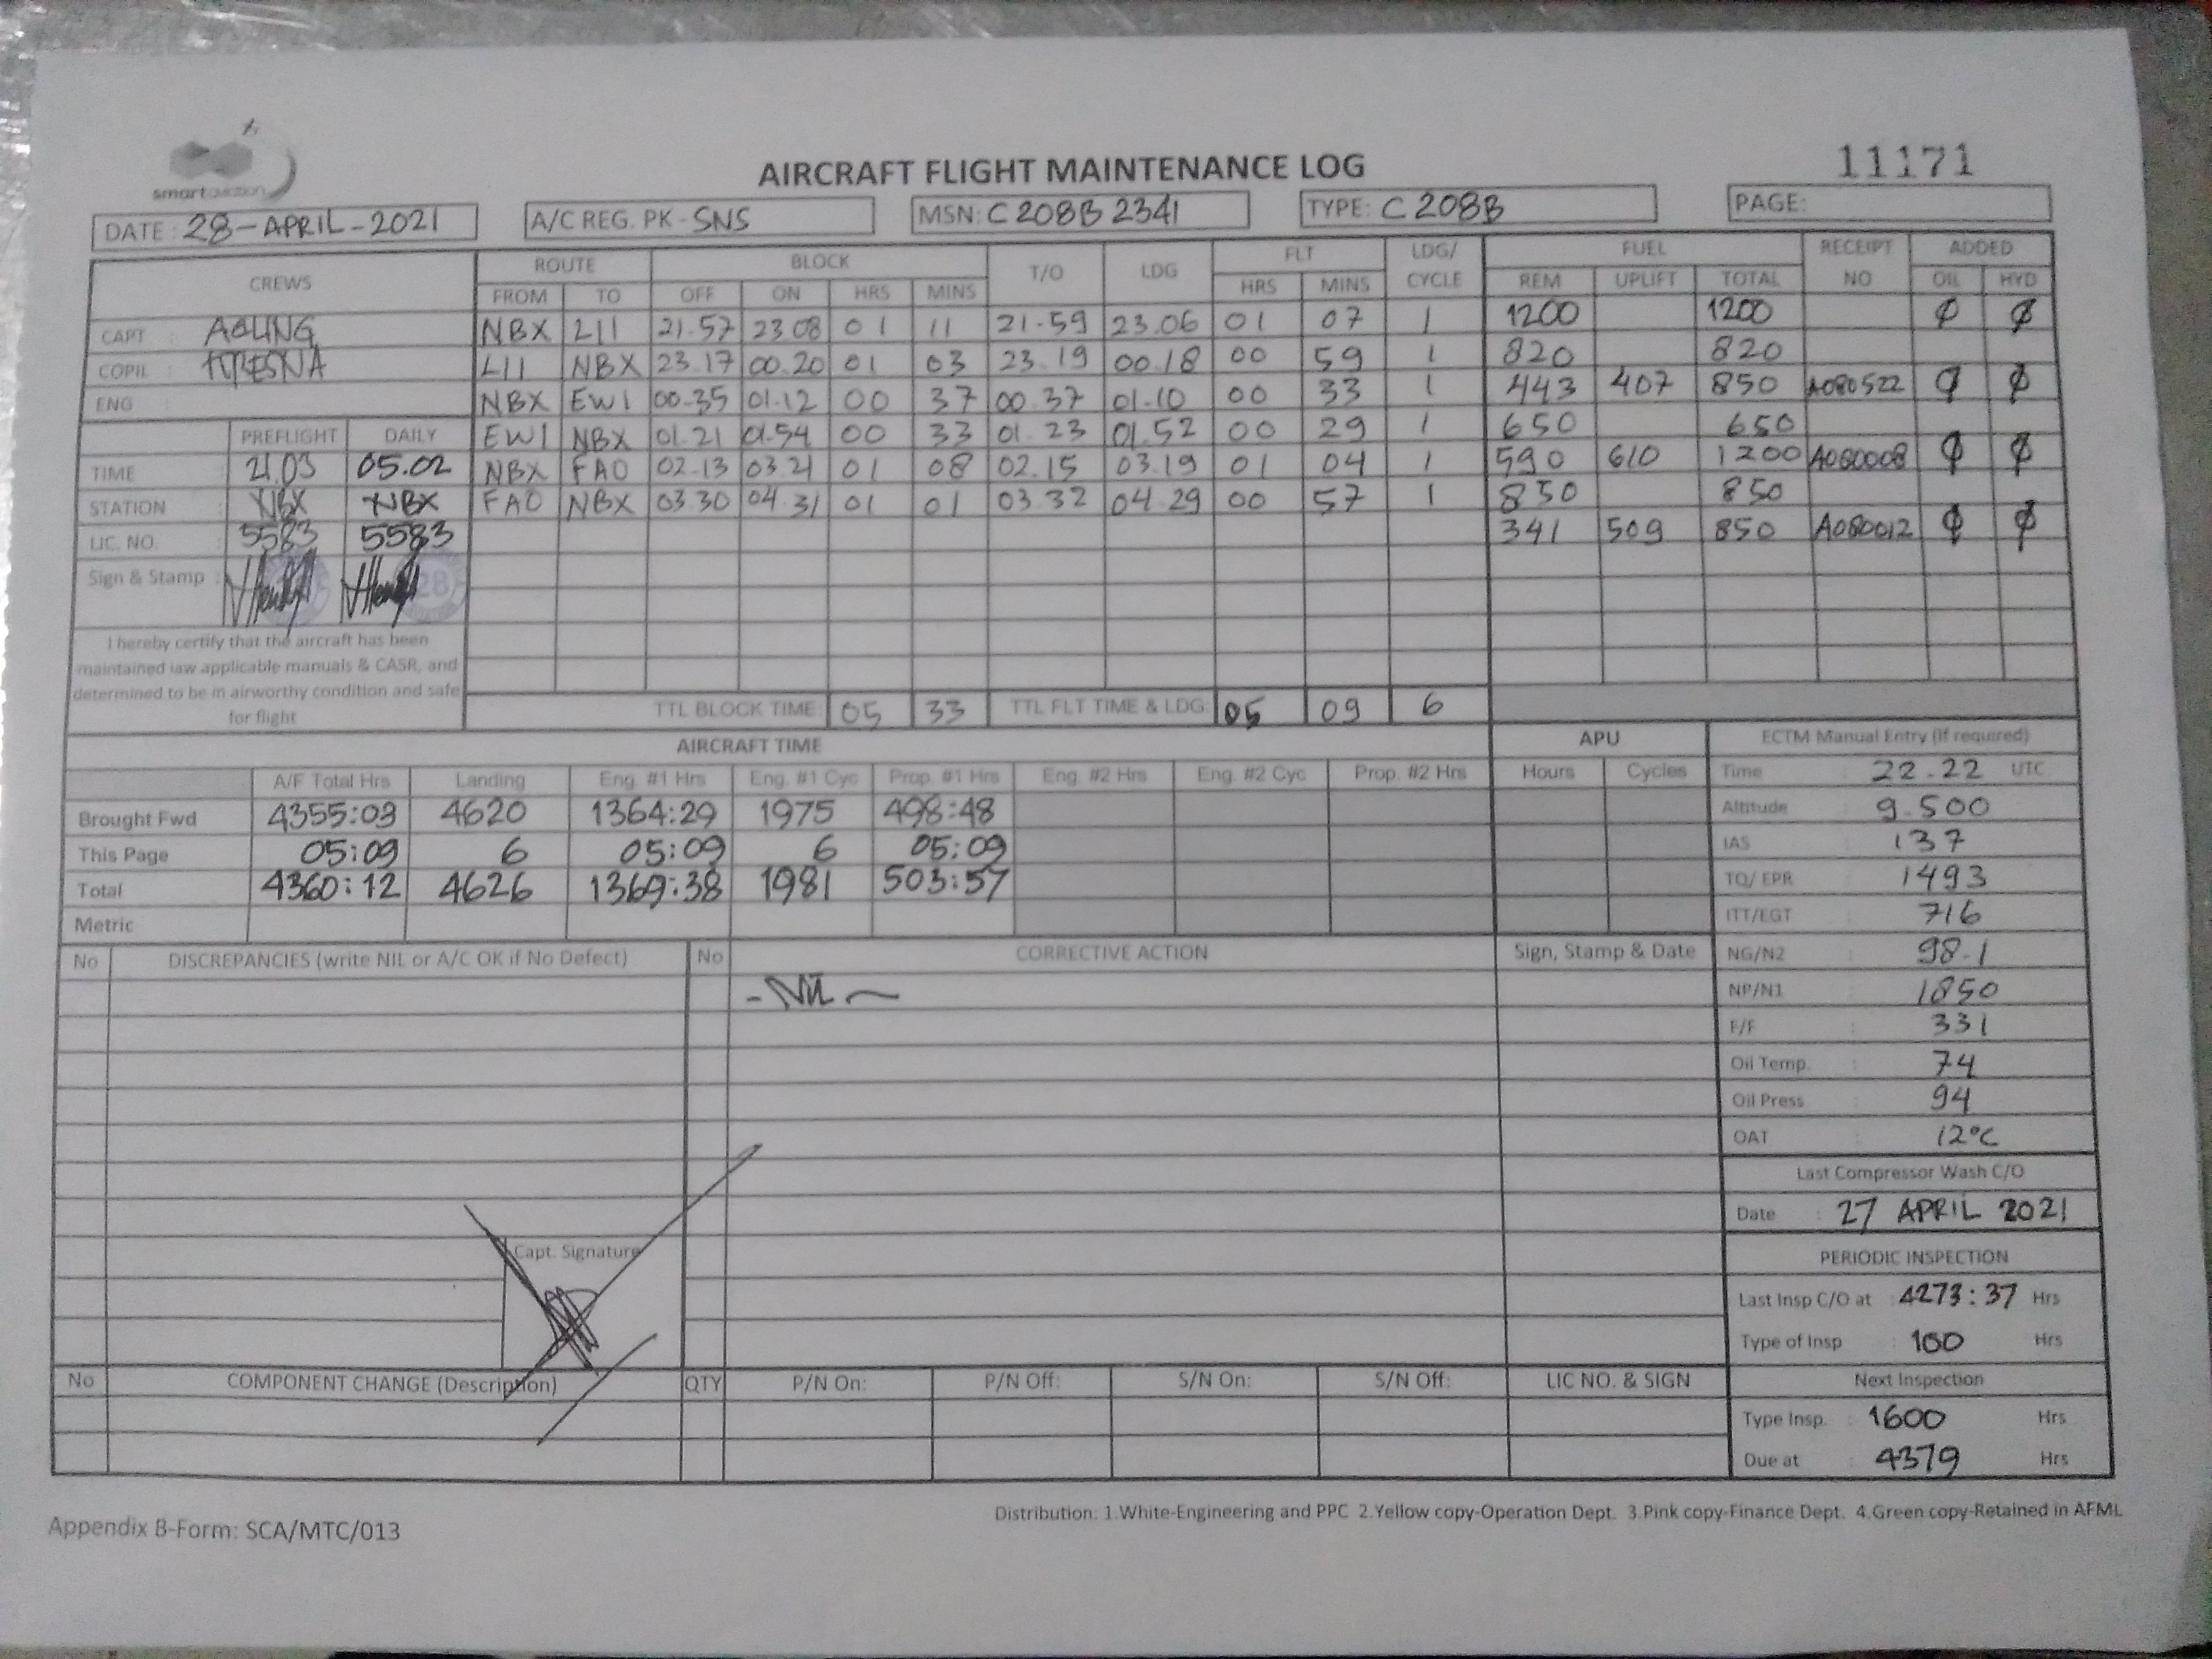 smart aviation
AIRCRAFT FLIGHT MAINTENANCE LOG
11171
DATE : 28-APRIL-2021 A/C REG. PK - SNS MSN: C 208B 2341 TYPE: C 208B PAGE:
CREWS ROUTE BLOCK T/O LDG FLT LDG/ CYCLE FUEL RECEIPT NO ADDED
FROM TO OFF ON HRS MINS HRS MINS REM UPLIFT TOTAL OIL HYD
CAPT : AGUNG NBX LII 21.57 23.08 01 11 21.59 23.06 01 07 1 1200 1200 ϕ ϕ
COPIL : KRESNA LII NBX 23.17 00.20 01 03 23.19 00.18 00 59 1 820 820
ENG NBX EWI 00.35 01.12 00 37 00.37 01.10 00 33 1 443 407 850 A080522 ϕ ϕ
PREFLIGHT DAILY EWI NBX 01.21 01.54 00 33 01.23 01.52 00 29 1 650 650
TIME : 21.03 05.02 NBX FAO 02.13 03.21 01 08 02.15 03.19 01 04 1 590 610 1200 A080008 ϕ ϕ
STATION : NBX NBX FAO NBX 03.30 04.31 01 01 03.32 04.29 00 57 1 850 850
LIC. NO. : 5583 5583 341 509 850 A080012 ϕ ϕ
Sign & Stamp :
28
I hereby certify that the aircraft has been
maintained iaw applicable manuals & CASR, and
determined to be in airworthy condition and safe
for flight
TTL BLOCK TIME: 05 33 TTL FLT TIME & LDG: 05 09 6
AIRCRAFT TIME APU ECTM Manual Entry (If required)
A/F Total Hrs Landing Eng. #1 Hrs Eng. #1 Cyc Prop. #1 Hrs Eng. #2 Hrs Eng. #2 Cyc Prop. #2 Hrs Hours Cycles Time : 22.22 UTC
Brought Fwd 4355:03 4620 1364:29 1975 498:48 Altitude : 9.500
This Page 05:09 6 05:09 6 05:09 IAS : 137
Total 4360:12 4626 1369:38 1981 503:57 TQ/ EPR : 1493
Metric ITT/EGT : 716
No DISCREPANCIES (write NIL or A/C OK if No Defect) No CORRECTIVE ACTION Sign, Stamp & Date NG/N2 : 98.1
- NIL - NP/N1 : 1850
F/F : 331
Oil Temp. : 74
Oil Press : 94
OAT : 12°C
Last Compressor Wash C/O
Date : 27 APRIL 2021
Capt. Signature PERIODIC INSPECTION
Last Insp C/O at : 4273:37 Hrs
Type of Insp : 100 Hrs
No COMPONENT CHANGE (Description) QTY P/N On: P/N Off: S/N On: S/N Off: LIC NO. & SIGN Next Inspection
Type Insp. : 1600 Hrs
Due at : 4379 Hrs
Appendix B-Form: SCA/MTC/013 Distribution: 1.White-Engineering and PPC 2.Yellow copy-Operation Dept. 3.Pink copy-Finance Dept. 4.Green copy-Retained in AFML